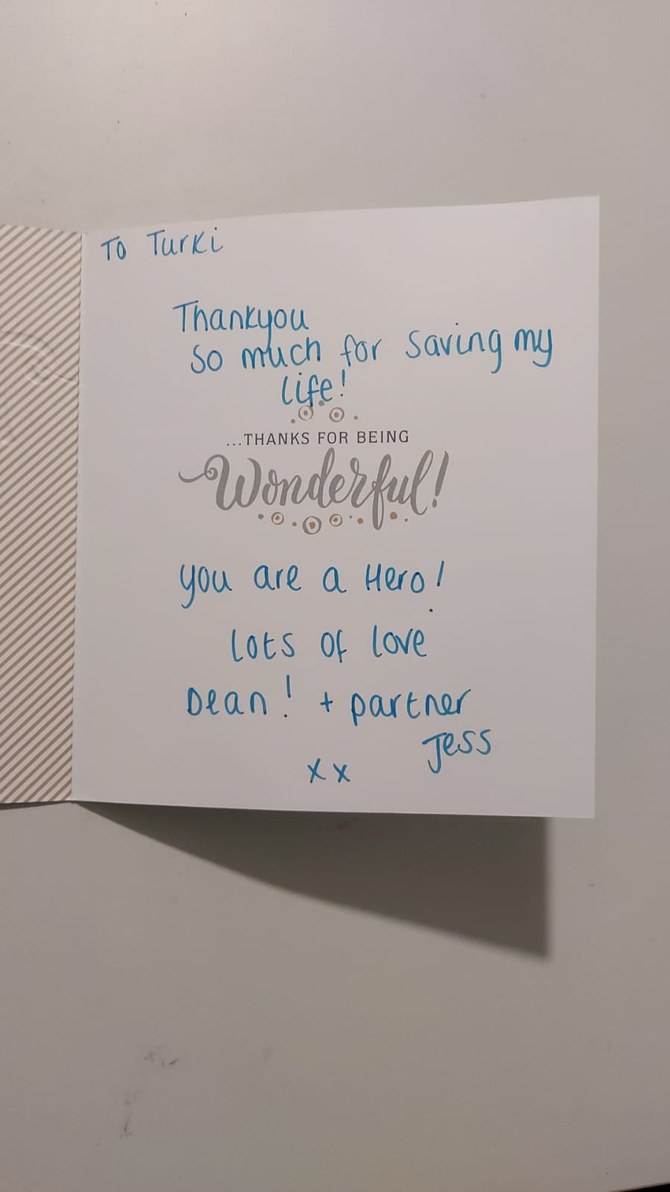 To Turki
Thankyou
so much for saving my
life!
...THANKS FOR BEING
Wonderful!
you are a Hero!
lots of love
Dean! + partner
Jess
xx